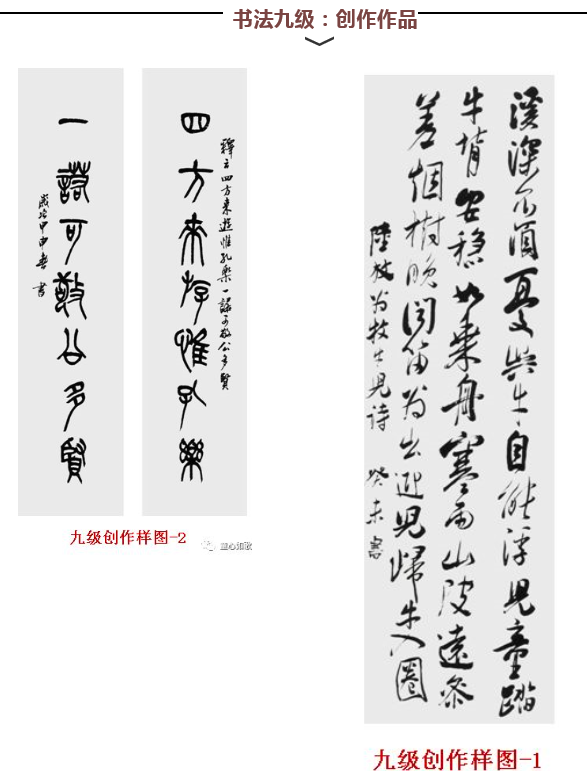 书法九级：创作作品
四方来游惟孔樂
釋文四方来遊惟孔樂一諾可敬公多賢
一諾可敬公多賢
歲次甲申春書
九级创作样图-2
溪深不須憂吳牛自能浮兒童踏
牛背安穩如乘舟寒雨山陂遠參
差烟樹晚聞笛翁出迎兒歸牛入圈
陸放翁牧牛兒詩 癸未書
九级创作样图-1